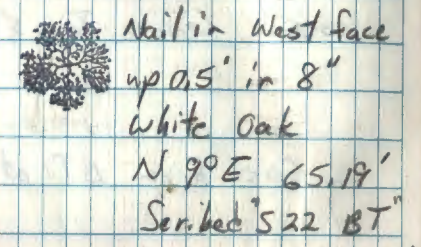 Nail in West face
up 0.5' in 8"
White Oak
N 9°E 65.19'
Scribed "S 22 BT"